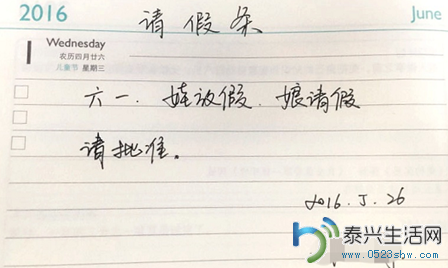 2016 请假条 June
1 Wednesday
农历四月廿六
儿童节 星期三
六一. 娃放假. 娘请假
请批准。
2016.5.26
泰兴生活网
www.0523shw.com